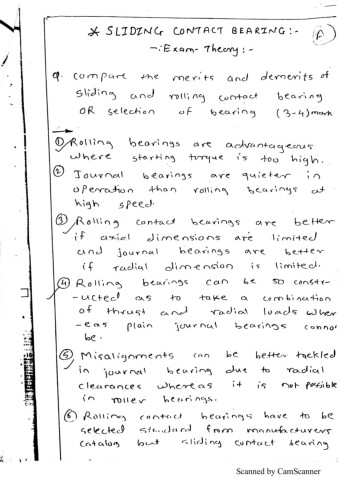 * SLIDING CONTACT BEARING:-
A
-:Exam-Theory:-
Q. compare the merits and demerits of
sliding and rolling contact bearing
OR selection of bearing (3-4)mark
① Rolling bearings are advantageous
where starting torque is too high.
② Journal bearings are quieter in
operation than rolling bearings at
high speed.
③ Rolling contact bearings are better
if axial dimensions are limited
and journal bearings are better
if radial dimension is limited.
④ Rolling bearings can be so constr-
-ucted as to take a combination
of thrust and radial loads wher
-eas plain journal bearings canno
be.
⑤ Misalignments can be better tackled
in journal bearing due to radial
clearances whereas it is not possible
in roller bearings.
⑥ Rolling contact bearings have to be
selected standard from manufacturers
catalog but sliding contact bearing
Scanned by CamScanner